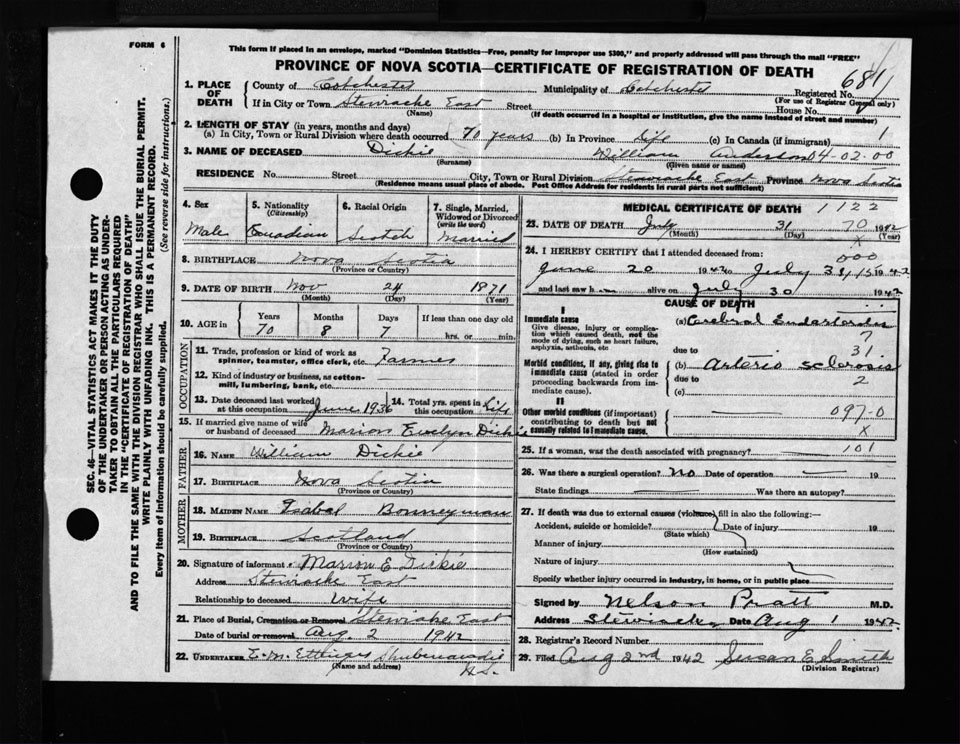 FORM 6
This form if placed in an envelope, marked "Dominion Statistics—Free, penalty for improper use $300," and properly addressed will pass through the mail "FREE"
PROVINCE OF NOVA SCOTIA—CERTIFICATE OF REGISTRATION OF DEATH
681
1. PLACE OF DEATH
County of Colchester Municipality of Colchester Registered No.
(For use of Registrar General only)
If in City or Town Stewiacke East Street House No.
(Name) (If death occurred in a hospital or institution, give the name instead of street and number)
2. LENGTH OF STAY (in years, months and days)
(a) In City, Town or Rural Division where death occurred 70 years (b) In Province Life (c) In Canada (if immigrant) 1
3. NAME OF DECEASED Dickie William Anderson 04-02-00
(Surname) (Given name or names)
RESIDENCE No. Street City, Town or Rural Division Stewiacke East Province Nova Scotia
(Residence means usual place of abode. Post Office Address for residents in rural parts not sufficient)
4. Sex
Male
5. Nationality
(Citizenship)
Canadian
6. Racial Origin
Scotch
7. Single, Married, Widowed or Divorced
(write the word)
Married
8. BIRTHPLACE Nova Scotia
(Province or Country)
9. DATE OF BIRTH Nov 24 1871
(Month) (Day) (Year)
10. AGE in Years Months Days If less than one day old
70 8 7 hrs. or min.
OCCUPATION
11. Trade, profession or kind of work as
spinner, teamster, office clerk, etc. Farmer
12. Kind of industry or business, as cotton-
mill, lumbering, bank, etc.
13. Date deceased last worked
at this occupation June 1936
14. Total yrs. spent in
this occupation Life
15. If married give name of wife
or husband of deceased Marion Evelyn Dickie
FATHER
16. Name William Dickie
17. Birthplace Nova Scotia
(Province or Country)
MOTHER
18. Maiden Name Isabal Bonneyman
19. Birthplace Scotland
(Province or Country)
20. Signature of informant Marion E. Dickie
Address Stewiacke East
Relationship to deceased Wife
21. Place of Burial, Cremation or Removal Stewiacke East
Date of burial or removal Aug. 2 1942
22. UNDERTAKER E. M. Ettinger Shubenacadie
(Name and address) N.S.
MEDICAL CERTIFICATE OF DEATH 1122
23. DATE OF DEATH July 31 1942
70
(Month) (Day) (Year)
x
24. I HEREBY CERTIFY that I attended deceased from:
000
June 20 1942 to July 31 1942
and last saw h m alive on July 30 1942
CAUSE OF DEATH
I
Immediate cause
Give disease, injury or complication which caused death, not the mode of dying, such as heart failure, asphyxia, asthenia, etc
(a) Cerebral
7
due to
31
Morbid conditions, if any, giving rise to immediate cause (stated in order proceeding backwards from immediate cause).
(b) Arterio sclerosis
due to 2
(c)
II
Other morbid conditions (if important) contributing to death but not causally related to immediate cause.
097-0
x
25. If a woman, was the death associated with pregnancy? 101
26. Was there a surgical operation? No Date of operation 19
State findings Was there an autopsy?
27. If death was due to external causes (violence) fill in also the following:—
Accident, suicide or homicide? Date of injury 19
(State which)
Manner of injury
(How sustained)
Nature of injury
Specify whether injury occurred in industry, in home, or in public place
Signed by Nelson Pratt M.D.
Address Stewiacke Date Aug 1 1942
28. Registrar's Record Number
29. Filed Aug 2nd 1942 Susan E Smith
(Division Registrar)
SEC. 46—VITAL STATISTICS ACT MAKES IT THE DUTY
OF THE UNDERTAKER OR PERSON ACTING AS UNDER-
TAKER TO OBTAIN ALL THE PARTICULARS REQUIRED
IN THE "CERTIFICATE OF REGISTRATION OF DEATH"
AND TO FILE THE SAME WITH THE DIVISION REGISTRAR WHO SHALL ISSUE THE BURIAL PERMIT.
WRITE PLAINLY WITH UNFADING INK. THIS IS A PERMANENT RECORD.
Every item of information should be carefully supplied. (See reverse side for instructions.)